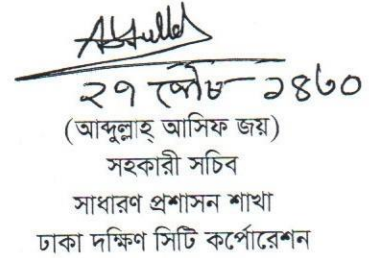 Abdullah
২৭ পৌষ ১৪৩০
(আব্দুল্লাহ্ আসিফ জয়)
সহকারী সচিব
সাধারণ প্রশাসন শাখা
ঢাকা দক্ষিণ সিটি কর্পোরেশন